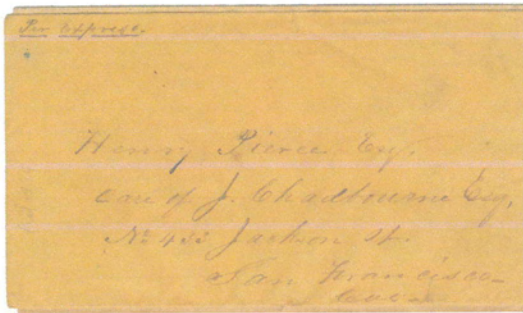 Per Express.
Henry Pierce Esq.
Care of J. Chadbourne Esq,
No Jackson St.
San Francisco